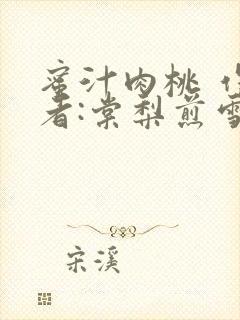 蜜汁肉桃 作
者:棠梨煎雪
宋溪